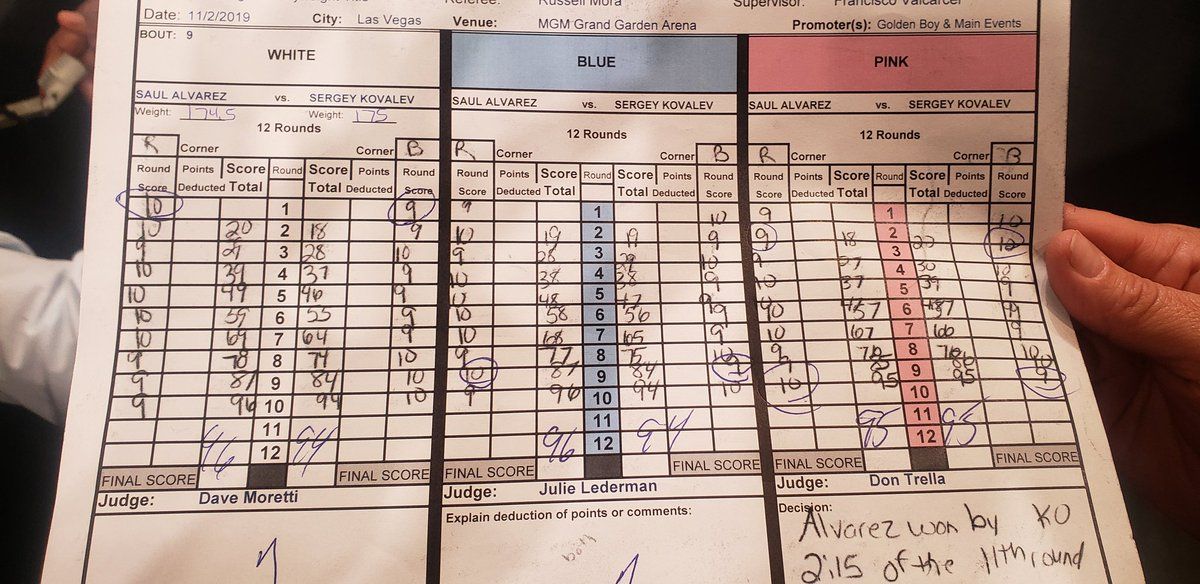 Referee: Russell Mora Supervisor: Francisco Valcarcel
Date: 11/2/2019 City: Las Vegas Venue: MGM Grand Garden Arena Promoter(s): Golden Boy & Main Events
BOUT: 9
WHITE BLUE PINK
SAUL ALVAREZ vs. SERGEY KOVALEV SAUL ALVAREZ vs. SERGEY KOVALEV SAUL ALVAREZ vs. SERGEY KOVALEV
Weight: 174.5 Weight: 175
12 Rounds 12 Rounds 12 Rounds
R Corner Corner B R Corner Corner B R Corner Corner B
Round Points Score Round Score Points Round Round Points Score Round Score Points Round Round Points Score Round Score Points Round
Score Deducted Total Total Deducted Score Score Deducted Total Total Deducted Score Score Deducted Total Total Deducted Score
10 1 9 9 1 10 9 1 10
10 20 2 18 9 10 19 2 19 9 9 18 2 20 10
9 29 3 28 10 9 28 3 29 10 9 27 3 30 10
10 39 4 37 9 10 38 4 38 9 10 37 4 39 9
10 49 5 46 9 10 48 5 47 9 5
10 59 6 55 9 10 58 6 56 9 6
10 69 7 64 9 10 68 7 65 9 10 67 7 66 9
9 78 8 74 10 9 77 8 75 10 9 8 10
9 87 9 84 10 10 87 9 84 9 10 9 9
9 96 10 94 10 9 96 10 94 10 95 10 95
11 11 11
96 12 94 96 12 94 95 12 95
FINAL SCORE FINAL SCORE FINAL SCORE FINAL SCORE FINAL SCORE FINAL SCORE
Judge: Dave Moretti Judge: Julie Lederman Judge: Don Trella
Explain deduction of points or comments: Decision:
Alvarez won by KO
2:15 of the 11th round